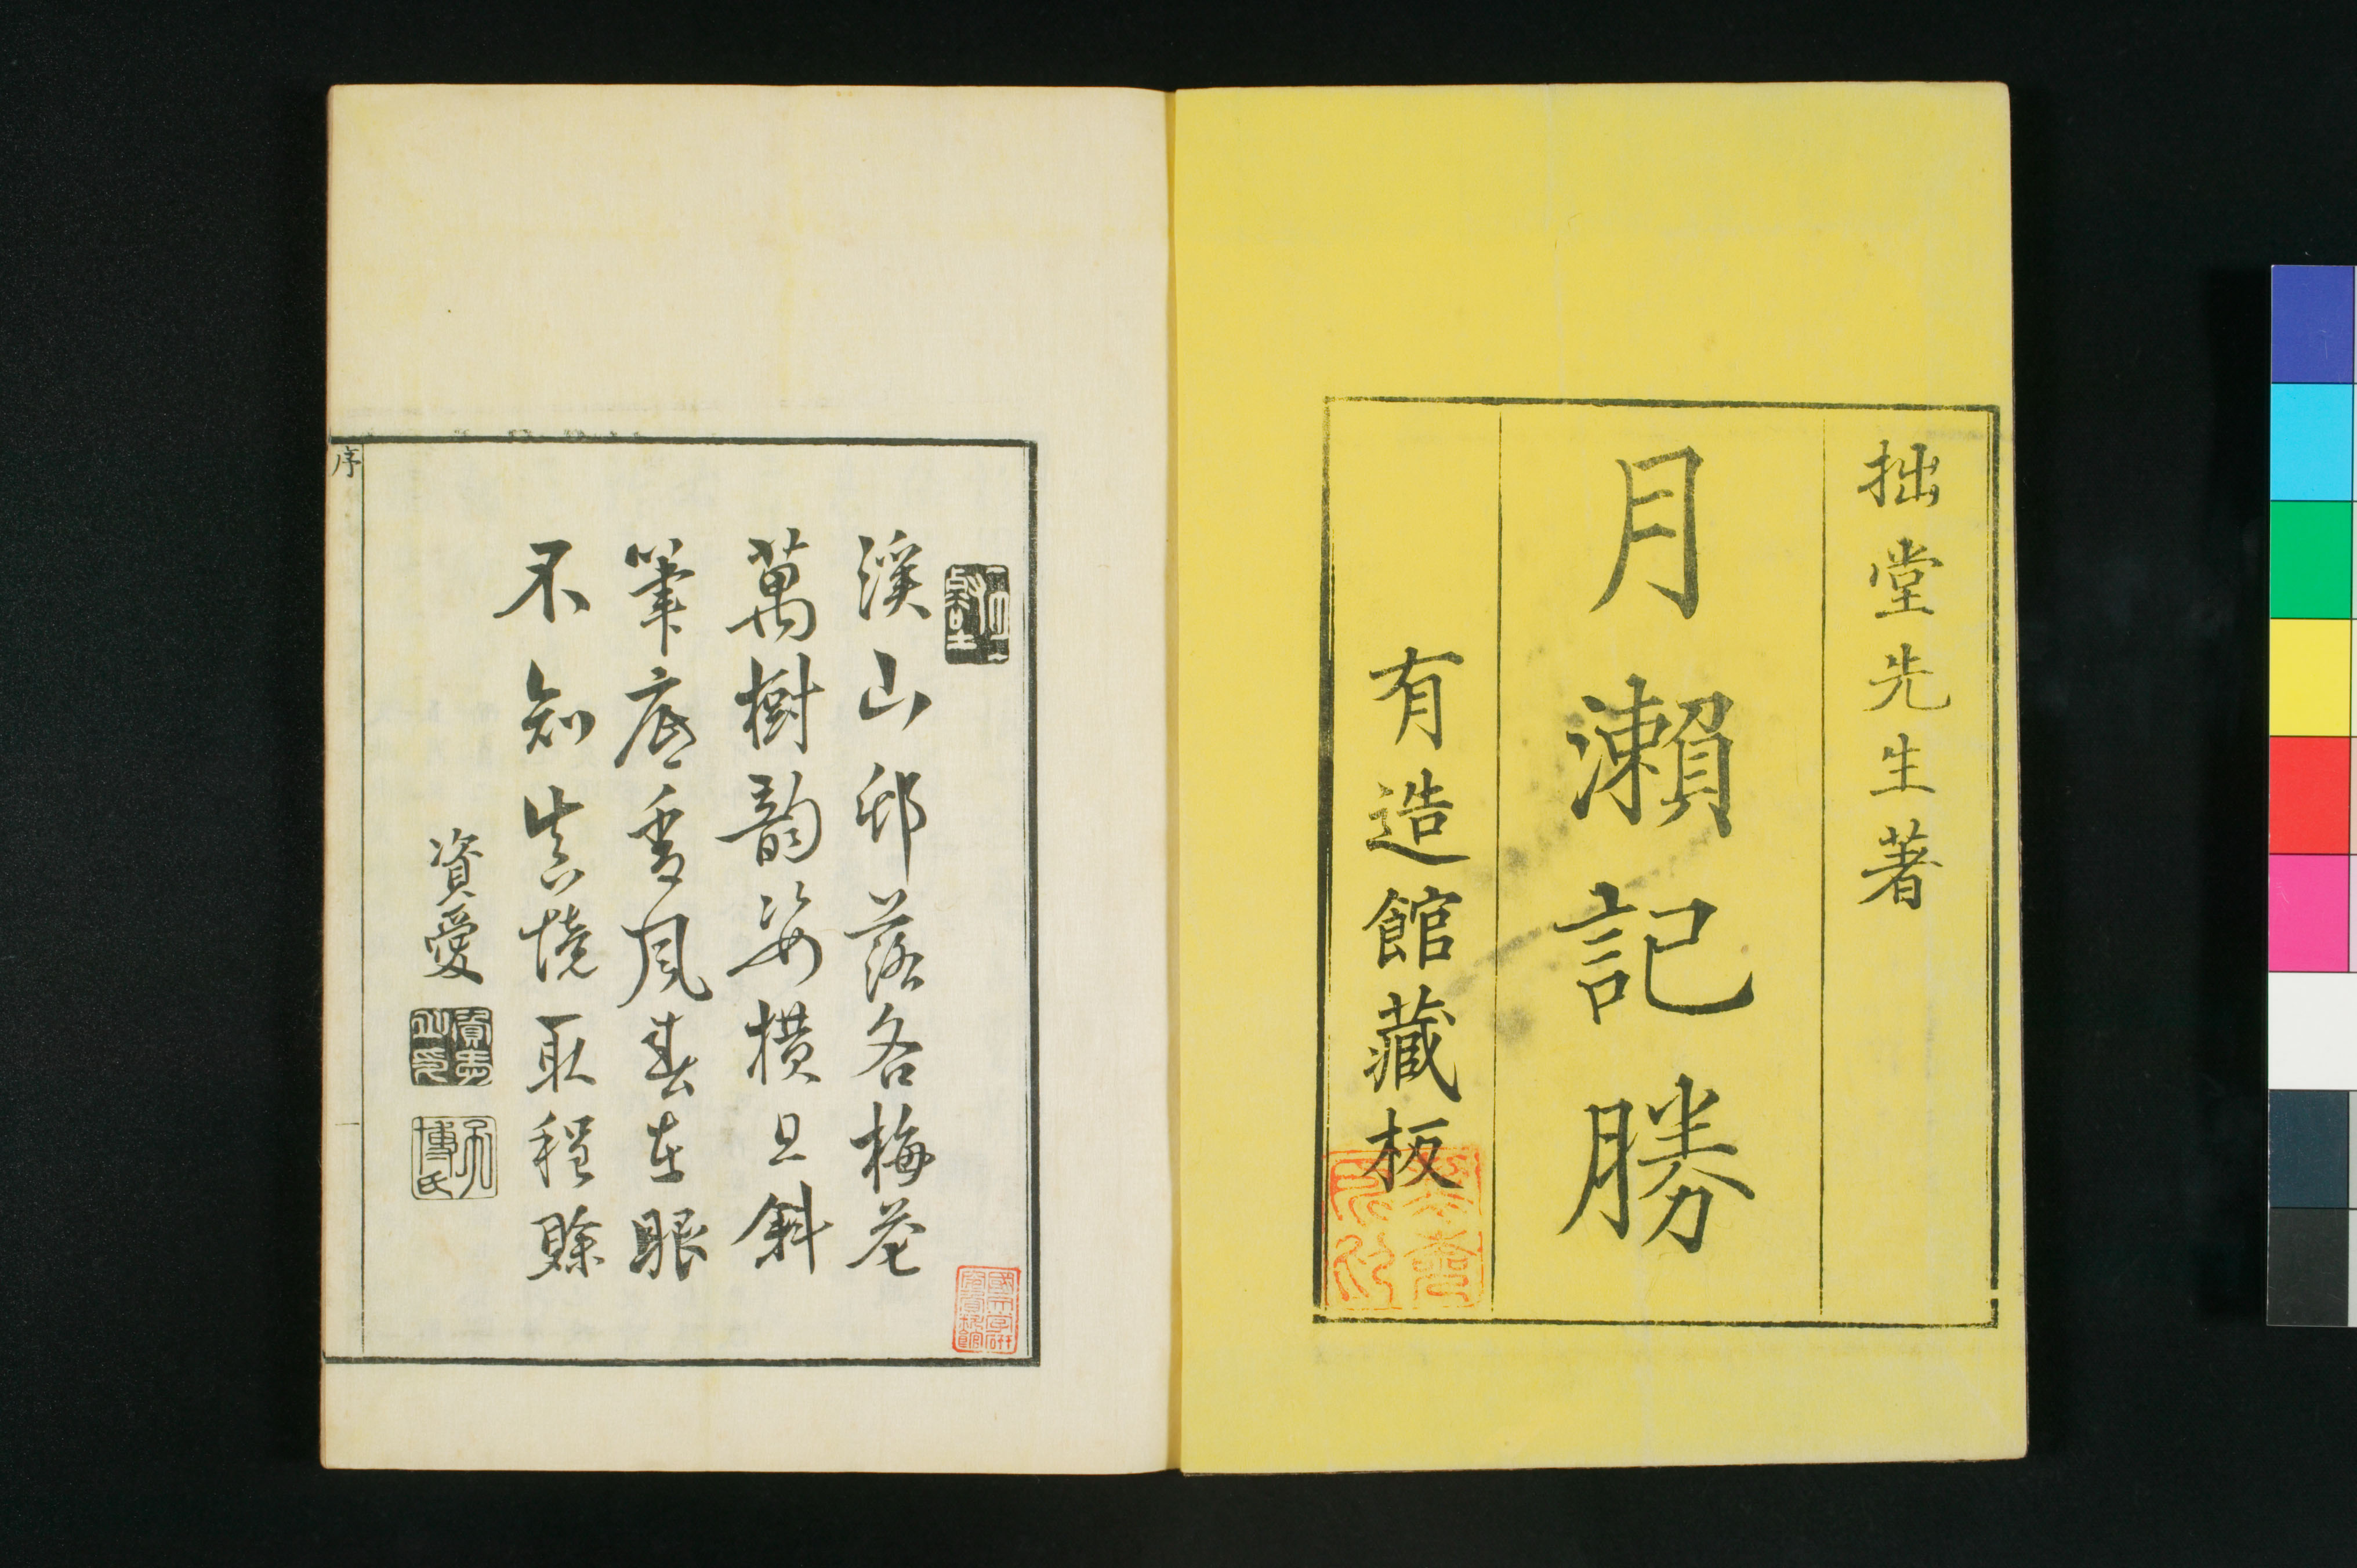 拙堂先生著
月瀬記勝
有造館藏板
溪山邨落各梅花
萬樹韵姿橫且斜
筆底香風春在眼
不知真境取程賒
資愛
序
一